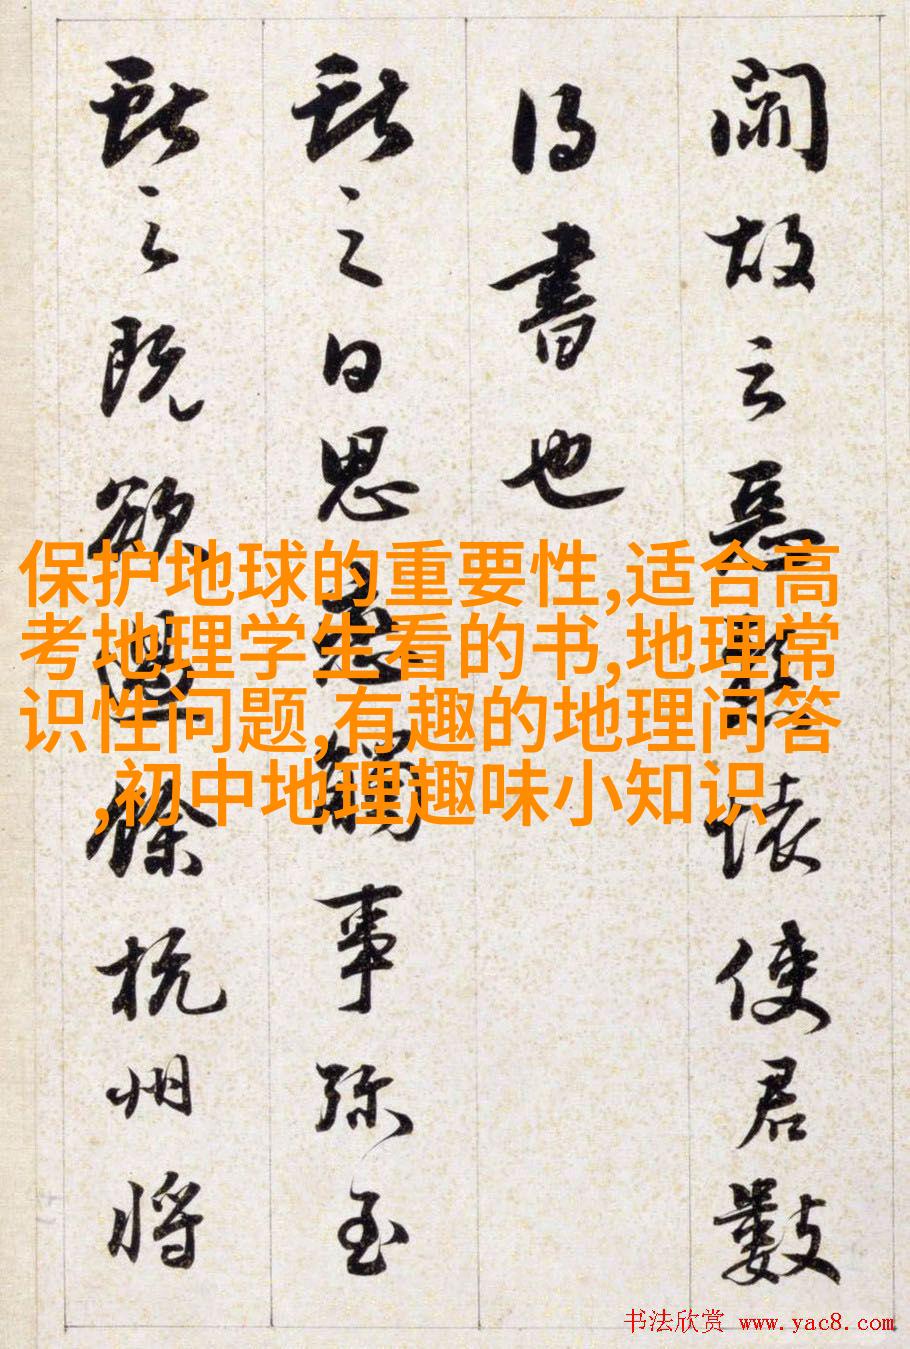 故云惡懸懐使君數
得書也
獻之白思戀觸事弥至
獻之既欲過餘杭州將
保护地球的重要性,适合高
考地理学生看的书,地理常
识性问题,有趣的地理问答
,初中地理趣味小知识
书法欣赏 www.yac8.com